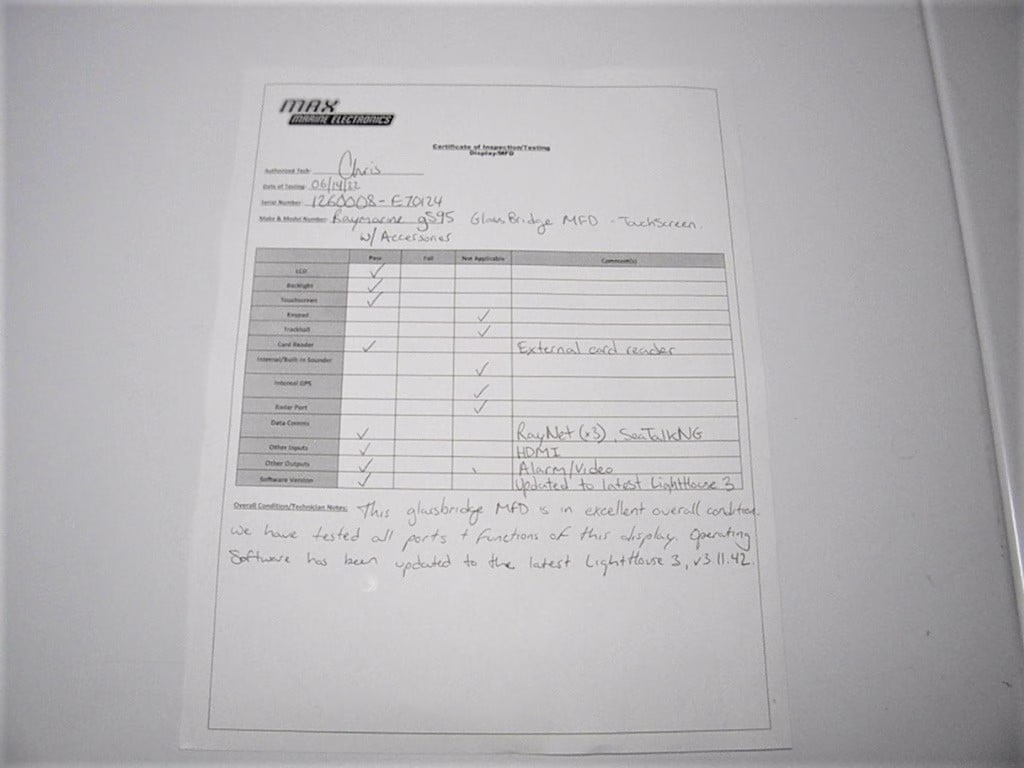 MAX
MARINE ELECTRONICS
Certificate of Inspection/Testing
Display/MFD
Authorized Tech: Chris
Date of Testing: 06/14/22
Serial Number: 1260008-E70124
Make & Model Number: Raymarine gS95 GlassBridge MFD - TouchScreen.
w/ Accessories
Pass Fail Not Applicable Comment(s)
LCD ✓
Backlight ✓
Touchscreen ✓
Keypad ✓
Trackball ✓
Card Reader ✓ External card reader
Internal/Built-in Sounder ✓
Internal GPS ✓
Radar Port ✓
Data Comms ✓ RayNet (x3), SeaTalkNG
Other Inputs ✓ HDMI
Other Outputs ✓ Alarm/Video
Software Version ✓ Updated to latest LightHouse 3
Overall Condition/Technician Notes: This glassbridge MFD is in excellent overall condition.
we have tested all ports + functions of this display. Operating
Software has been updated to the latest LightHouse 3, v3.11.42.